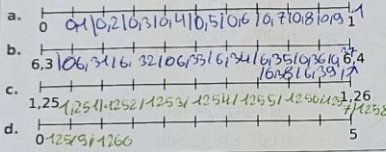 a. 0 0,1 0,2 0,3 0,4 0,5 0,6 0,7 0,8 0,9 1 1
b. 6,3 06,31 6,32 06,33 6,34 6,35 6,4
6,38 6,39
c. 1,25 1,251 1252 1253 1254 1255 1256 1,26
1258
d. 0 1259 1260 5